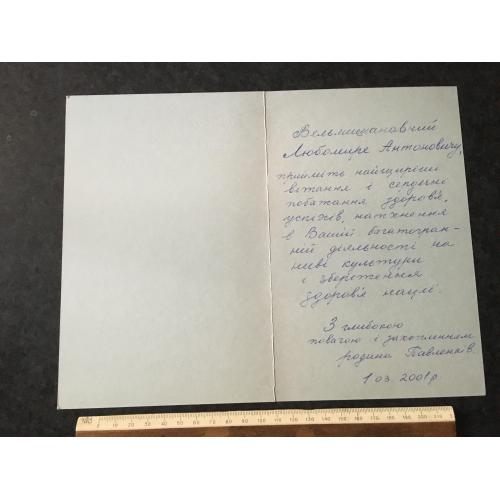 Вельмишановний
Любомире Антоновичу,
прийміть найщиріші
вітання і сердечні
побажання здоров'я,
успіхів, натхнення
в Вашій багатогран-
ній діяльності на
ниві культури
і збереження
здоров'я нації.
З глибокою
повагою і захопленням
родина Павленків.
1.03.2001р.